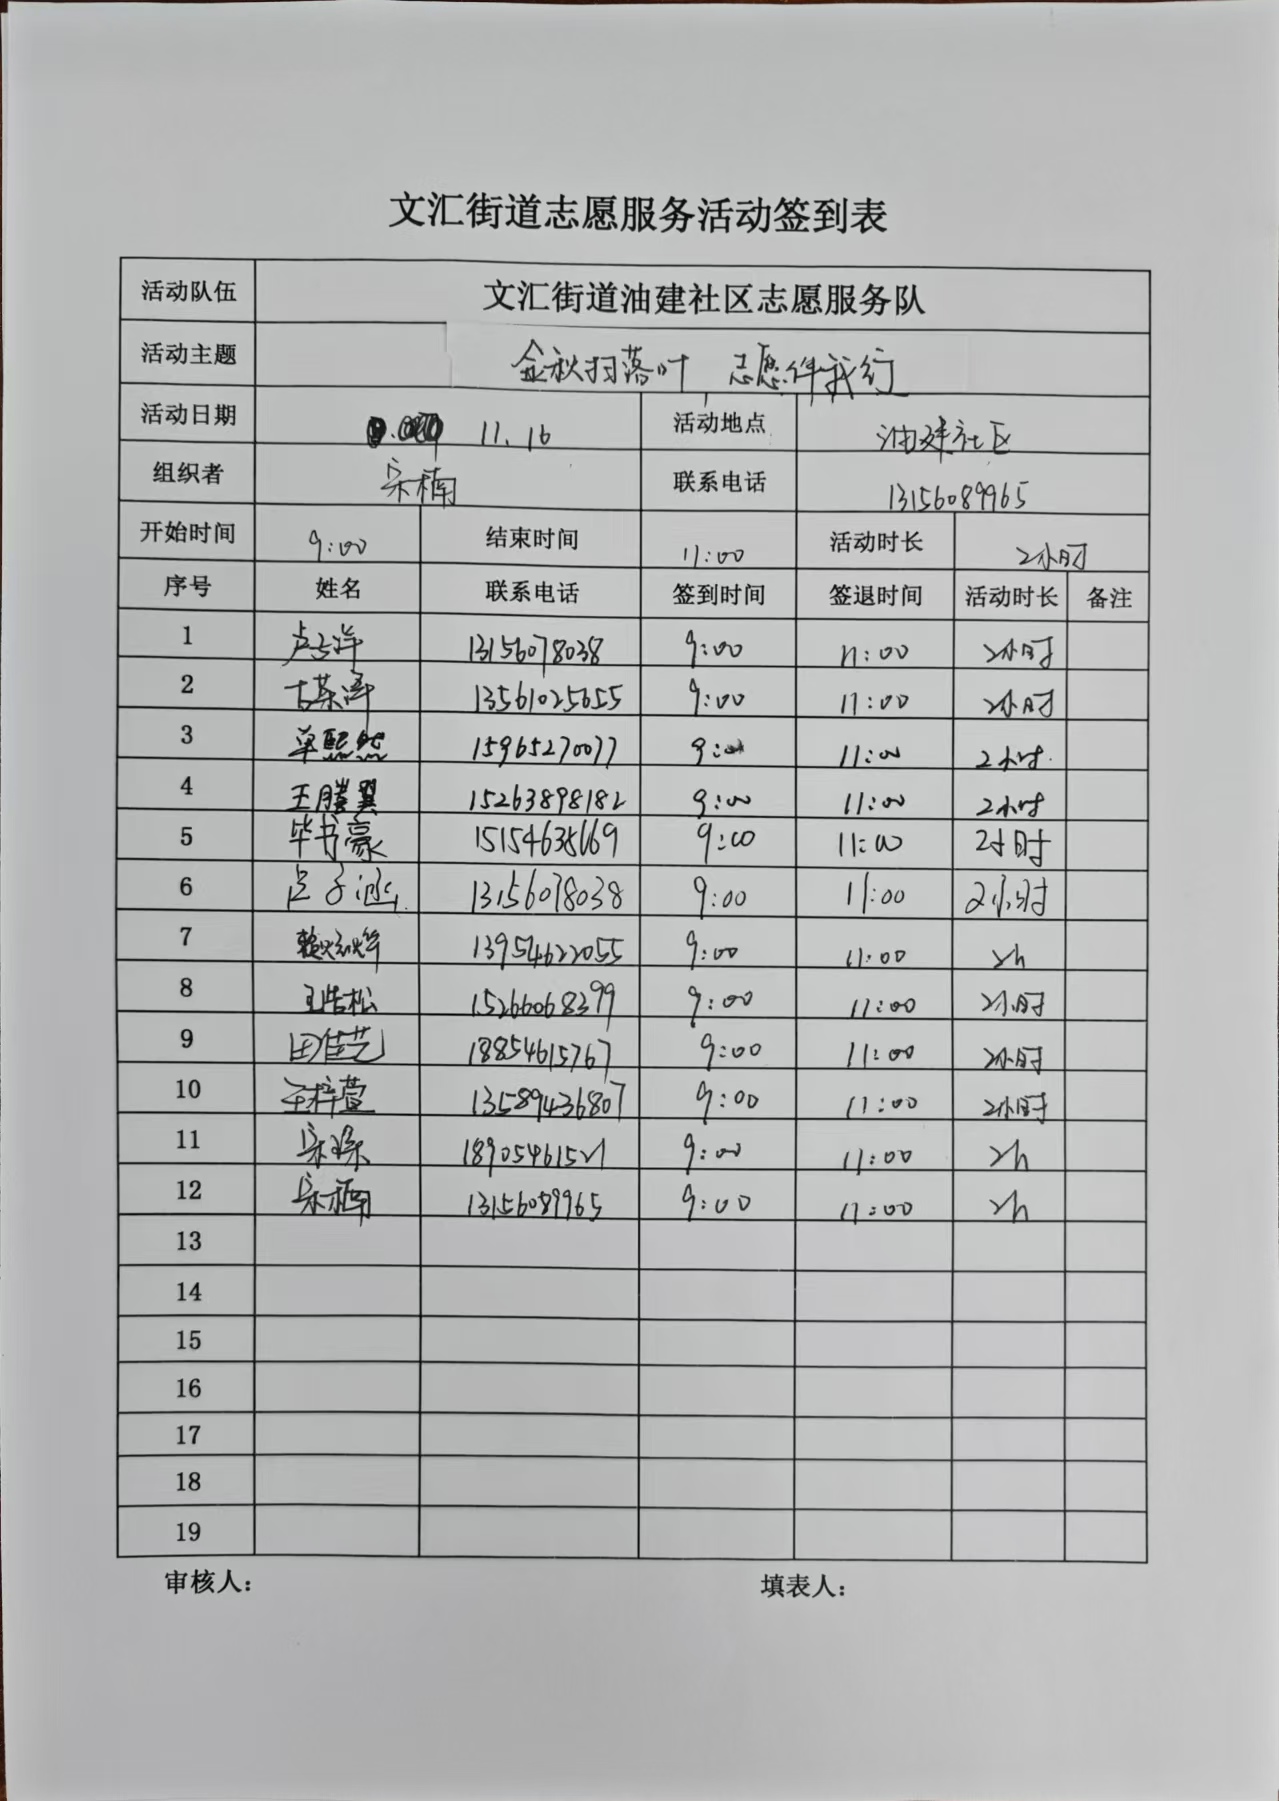 文汇街道志愿服务活动签到表
活动队伍 文汇街道油建社区志愿服务队
活动主题 金秋扫落叶 志愿伴我行
活动日期 11.16 活动地点 油建社区
组织者 宋楠 联系电话 13156089965
开始时间 9:00 结束时间 11:00 活动时长 2小时
序号 姓名 联系电话 签到时间 签退时间 活动时长 备注
1 13156078038 9:00 11:00 2小时
2 13561025655 9:00 11:00 2小时
3 单熙然 15965270077 9:00 11:00 2小时.
4 王腾翼 15263898182 9:00 11:00 2小时
5 毕书豪 15154635669 9:00 11:00 2小时
6 13156078038 9:00 11:00 2小时
7 13954622055 9:00 11:00 2h
8 王浩松 15266068399 9:00 11:00 2小时
9 田佳艺 18854615767 9:00 11:00 2小时
10 王梓萱 13589436807 9:00 11:00 2小时
11 18905461521 9:00 11:00 2h
12 宋楠 13156089965 9:00 11:00 2h
13
14
15
16
17
18
19
审核人： 填表人：